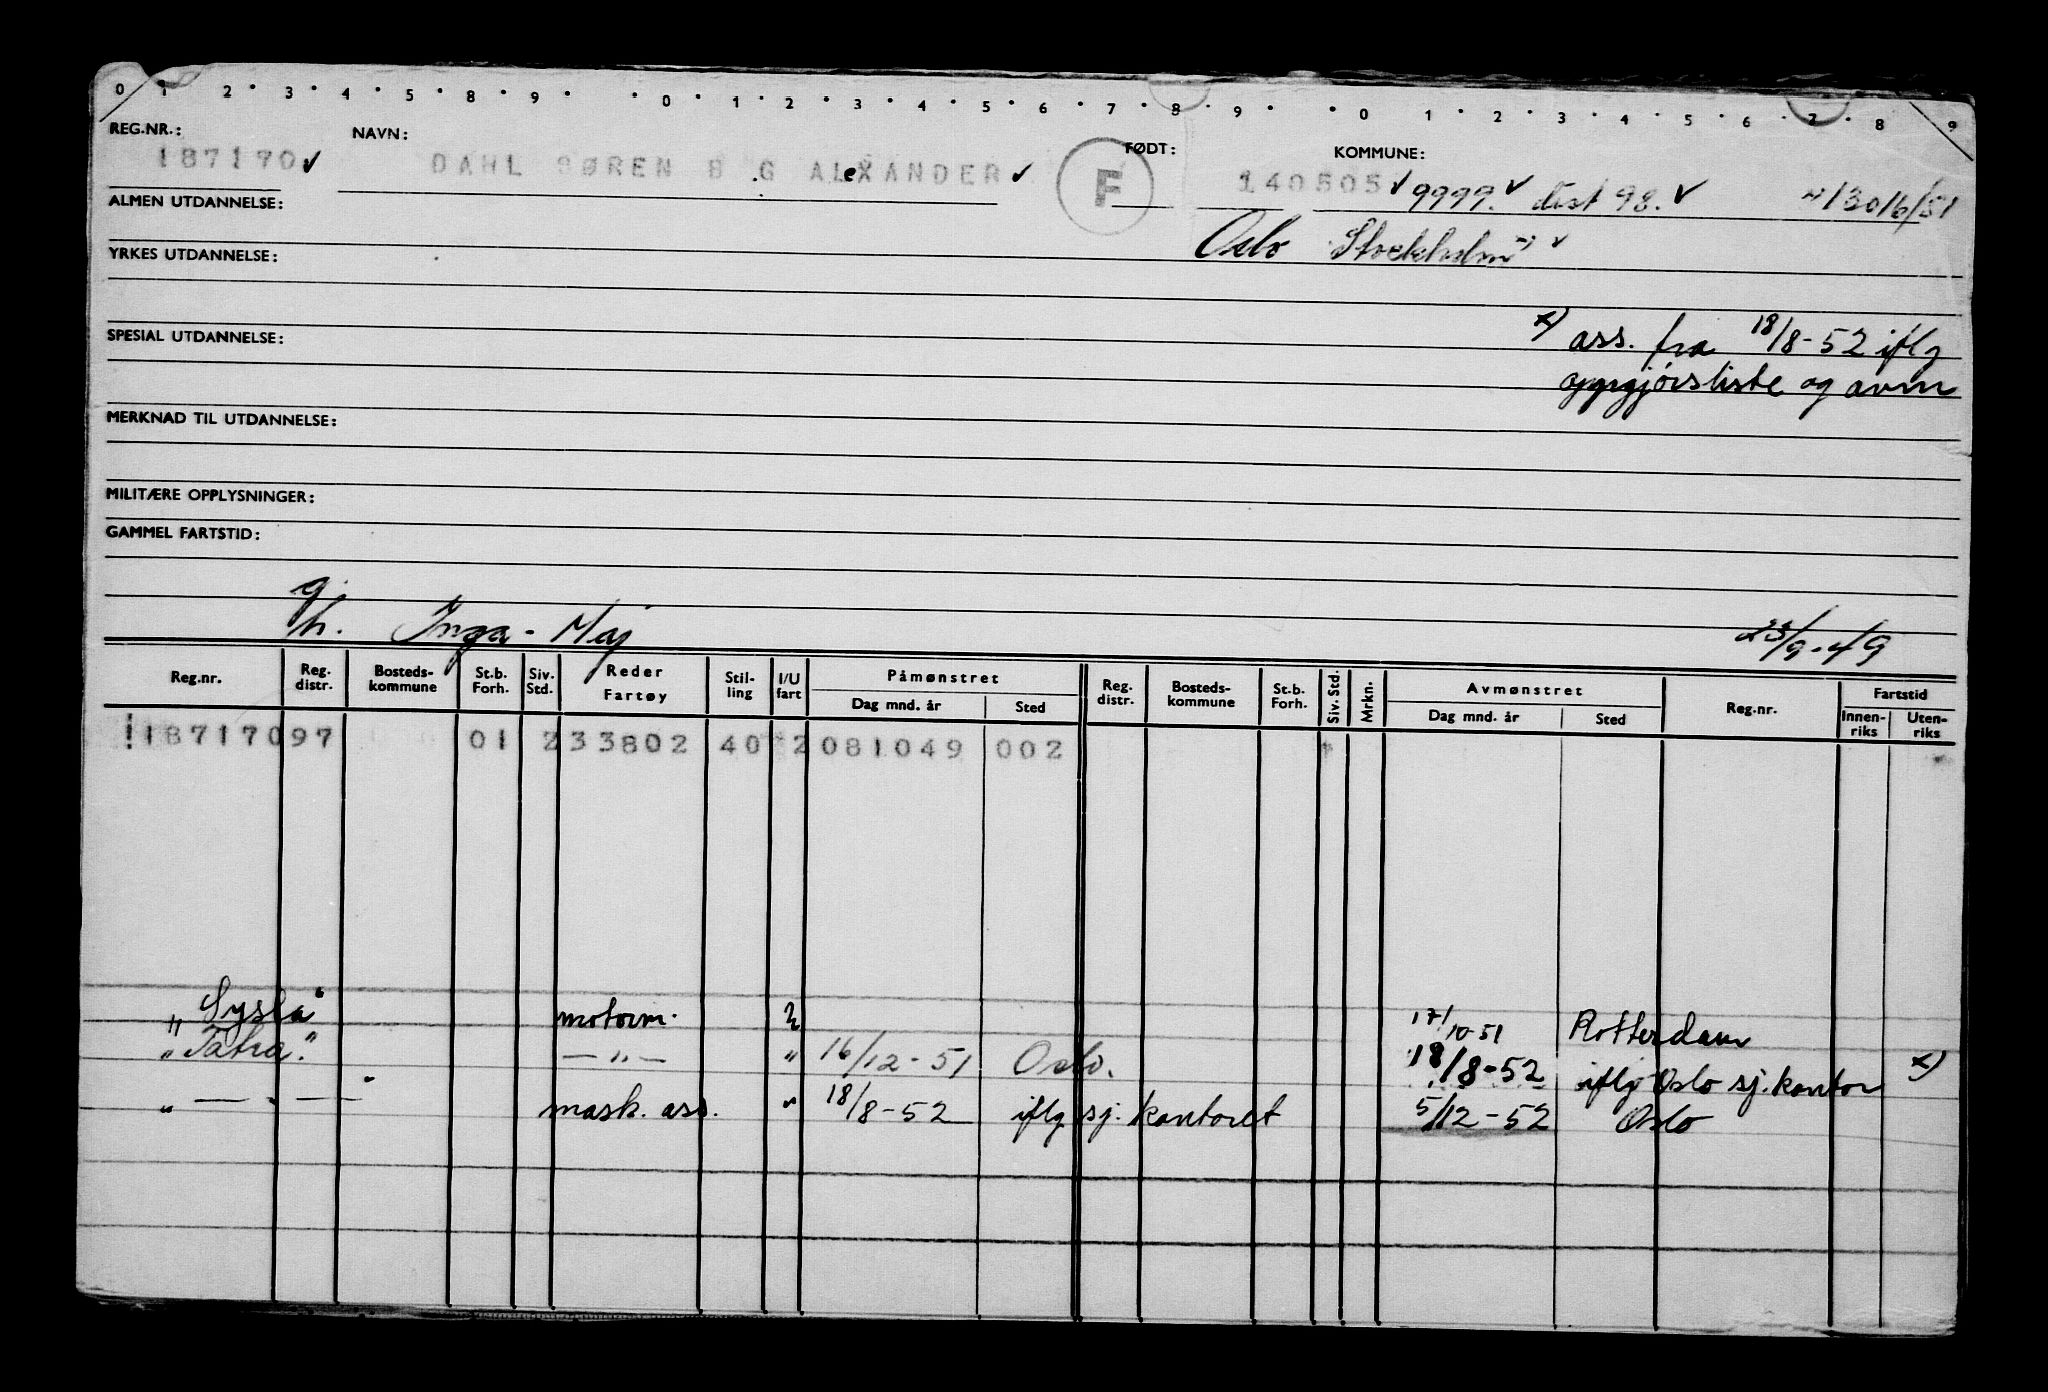 0 1 2 · 3 · 4 · 5 · 8 · 9 · · 0 · 1 · 2 · 3 · 4 · 5 · 6 · 7 · 8 · 9 · · 0 · 1 · 2 · 3 · 4 · 5 · 6 · 7 · 8 9
REG.NR.: NAVN: FØDT: KOMMUNE:
187170 ✓ DAHL SØREN B G ALeXANDER ✓ F 140505 ✓ 9999. ✓ dist 98. ✓ 13016/51
ALMEN UTDANNELSE: Oslo Stockholm ✓
YRKES UTDANNELSE:
SPESIAL UTDANNELSE: x) ass. fra 18/8-52 iflg
oppgjørsliste og avm
MERKNAD TIL UTDANNELSE:
MILITÆRE OPPLYSNINGER:
GAMMEL FARTSTID:
g.
h. Inga-Maj 23/9-49
Reg.nr. Reg. distr. Bosteds-kommune St.b. Forh. Siv. Std. Reder Fartøy Stil-ling I/U fart Påmønstret Dag mnd. år Sted Reg. distr. Bosteds-kommune St.b. Forh. Siv. Std. Mrkn. Avmønstret Dag mnd. år Sted Reg.nr. Fartstid Innen-riks Uten-riks
!18717097 01 233802 40 2 081049 002
"Sysla" motorm. 2 17/10-51 Rotterdam
"Tatra." — " — " 16/12-51 Oslo. 18/8-52 iflg Oslo sj.kontor x)
" — " — mask. ass. " 18/8-52 iflg sj. kontoret 5/12-52 Oslo